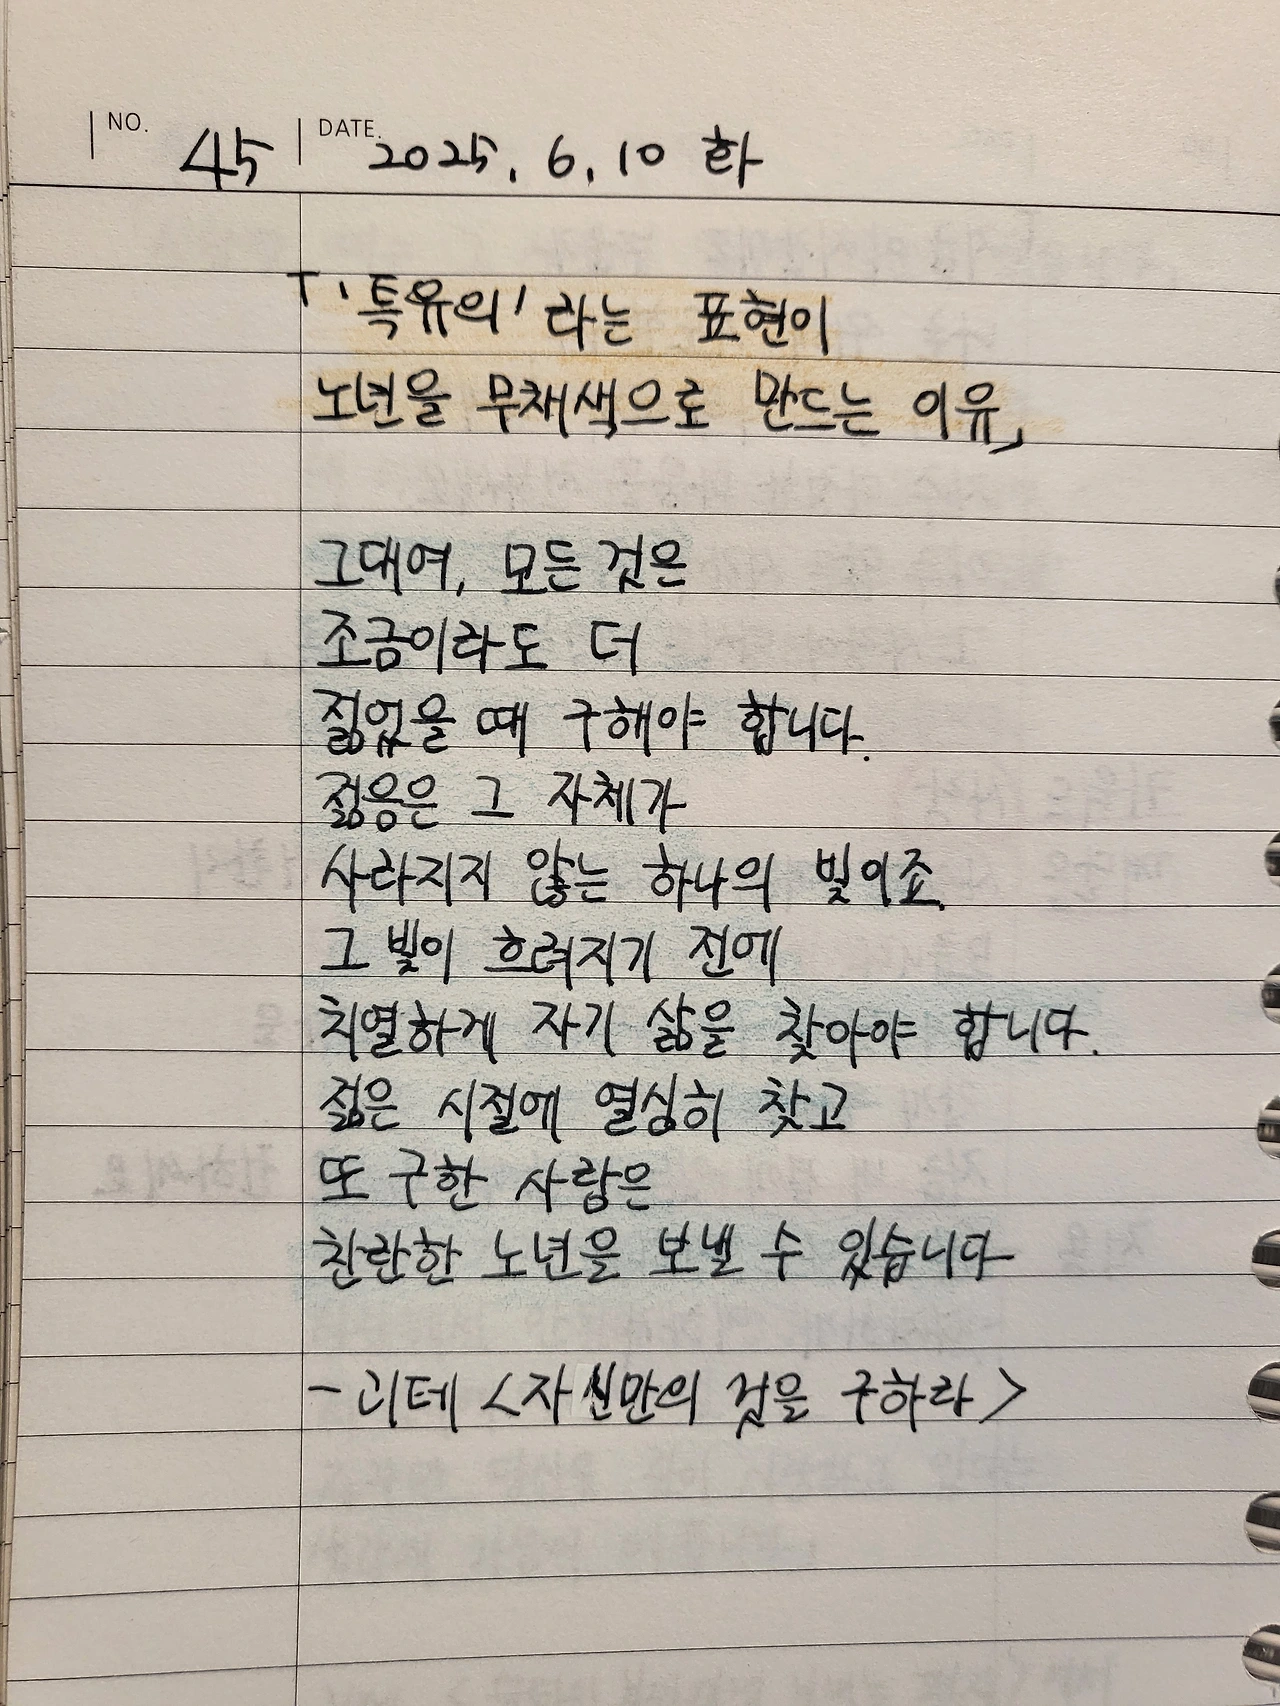 NO. 45 DATE. 2025. 6. 10 화
「'특유의'라는 표현이
노년을 무채색으로 만드는 이유」
그대여, 모든 것은
조금이라도 더
젊었을 때 구해야 합니다.
젊음은 그 자체가
사라지지 않는 하나의 빛이죠.
그 빛이 흐려지기 전에
치열하게 자기 삶을 찾아야 합니다.
젊은 시절에 열심히 찾고
또 구한 사람은
찬란한 노년을 보낼 수 있습니다
- 괴테 <자신만의 것을 구하라>